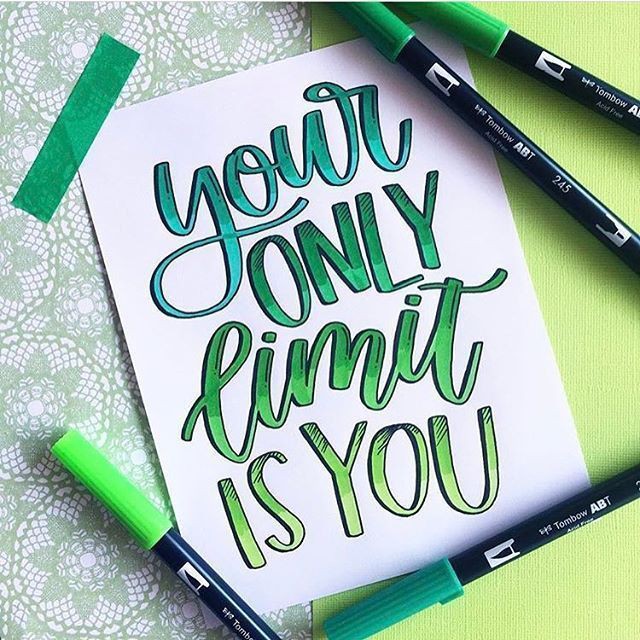 your
ONLY
limit
IS YOU
Tombow ABT
Acid Free
Tombow ABT
Acid Free
245
Tombow ABT